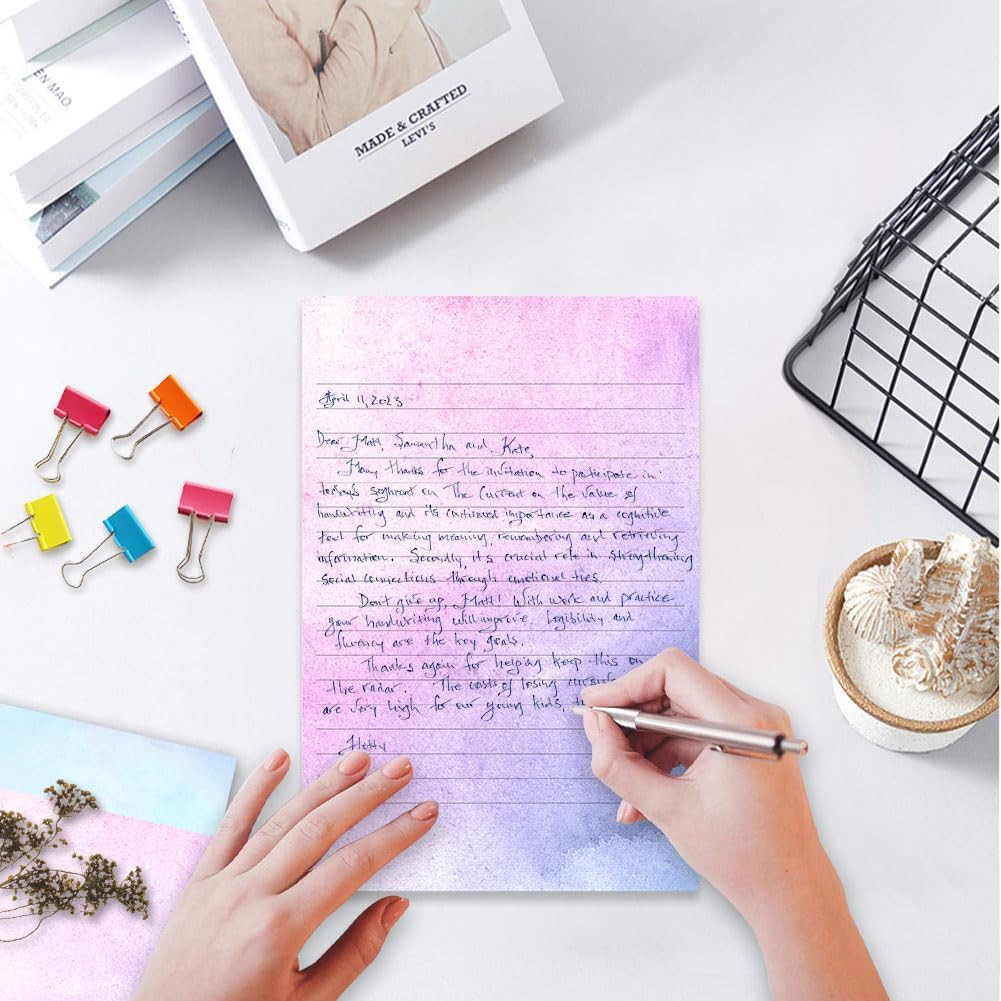 EN MAO.
MADE & CRAFTED
LEVI'S
April 11, 2023
Dear Matt, Samantha and Kate,
Many thanks for the invitation to participate in
today's seghment on The Current on the value of
handwriting and it's continued importance as a cognitive
tool for making meaning, remembering and retrieving
information. Secondly, it's crucial role in strengthening
social connections through emotional ties.
Don't give up, Matt! With work and practice
your handwriting will improve. Legibility and
fluency are the key goals.
Thanks again for helping keep this on
the radar. The costs of losing cursive
are very high for our young kids,
Hetty